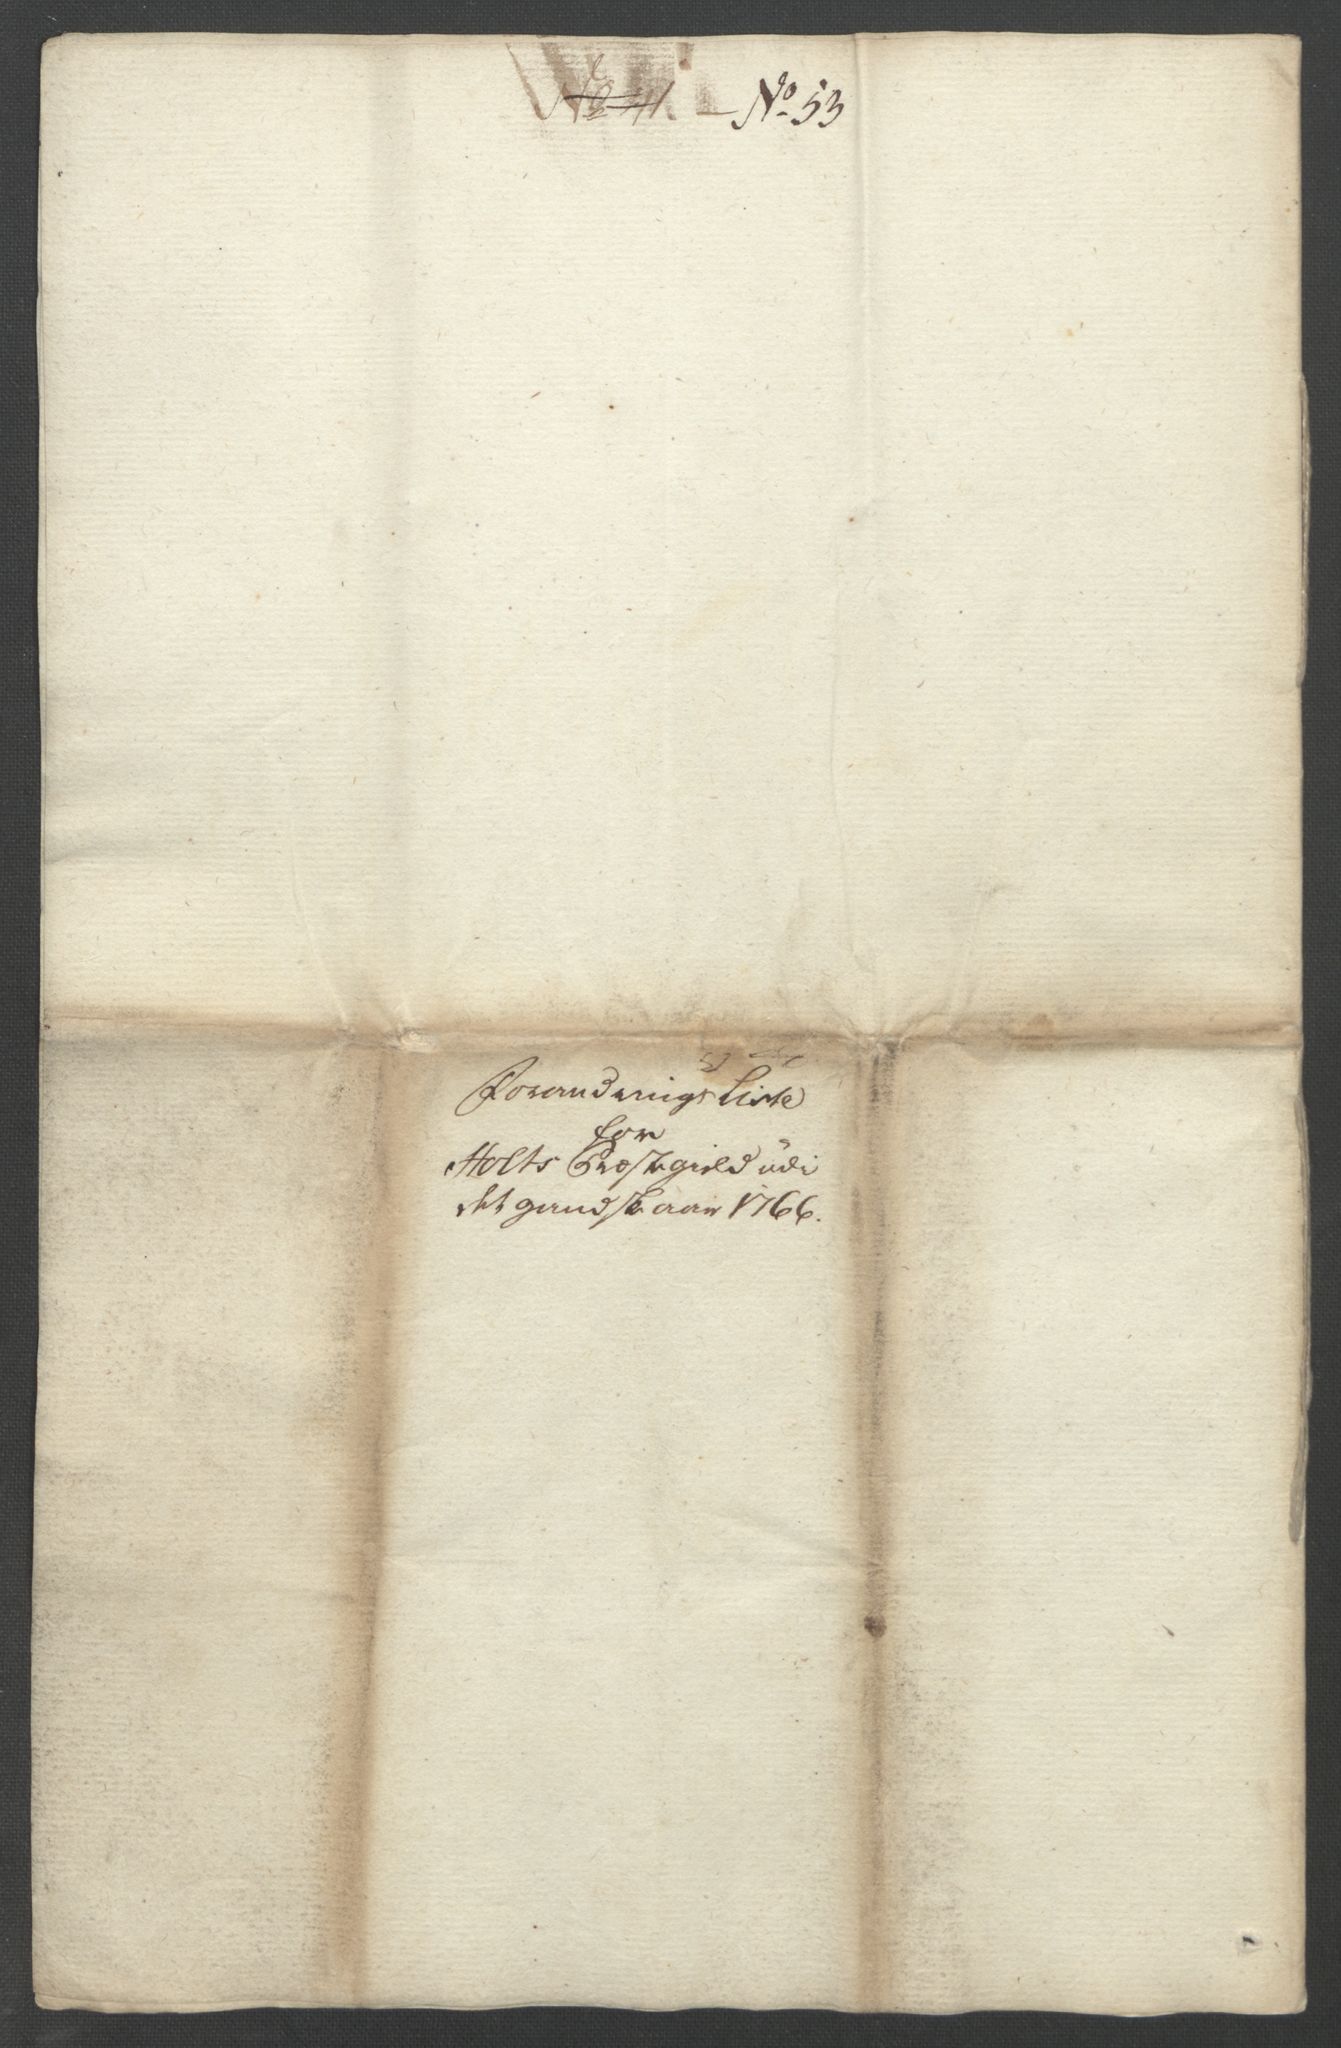 No 53
Forandrings Liste
for
Holts Præstegield udi
det gandske aar 1766.